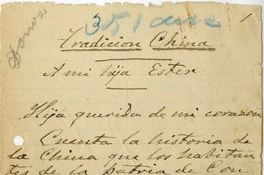 Tradicion China
A mi hija Ester
Hija querida de mi corazon
Cuenta la historia de
la China que los habitan-
tes de la patria de Con